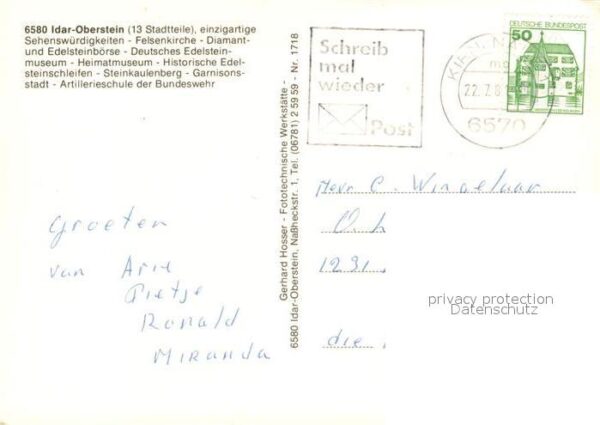 6580 Idar-Oberstein (13 Stadtteile), einzigartige
Sehenswürdigkeiten - Felsenkirche - Diamant-
und Edelsteinbörse - Deutsches Edelstein-
museum - Heimatmuseum - Historische Edel-
steinschleifen - Steinkaulenberg - Garnisons-
stadt - Artillerieschule der Bundeswehr
Groeten
van Arie
Pietje
Ronald
Miranda
Gerhard Hosser - Fototechnische Werkstätte -
6580 Idar-Oberstein, Naßheckstr. 1, Tel. (06781) 2 59 59 - Nr. 1718
Schreib
mal
wieder
Post
KIRN, NA
22.7.8
6570
DEUTSCHE BUNDESPOST
50
Herr C. Wingelaar
O. L
1231,
die
privacy protection
Datenschutz